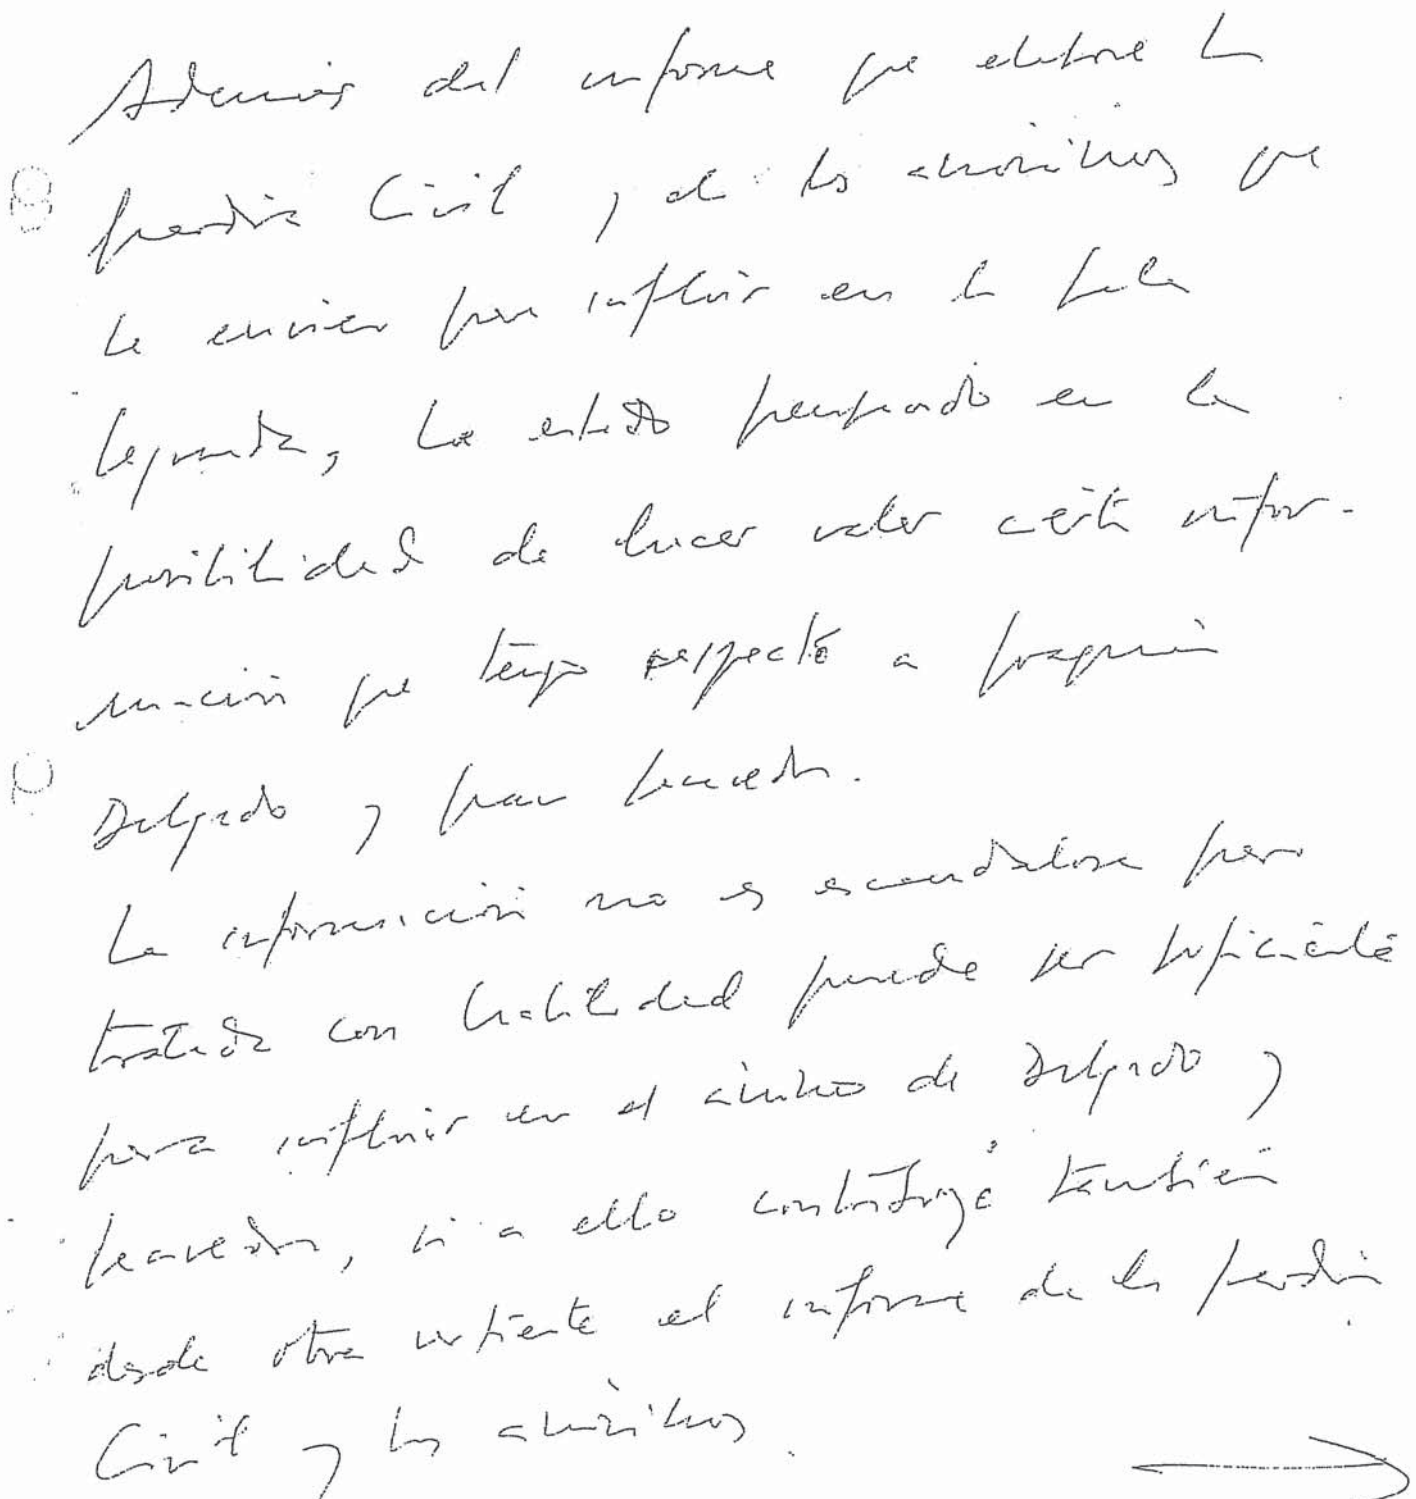 Además del informe que elabore la
Guardia Civil, y de los anónimos que
le envíen para influir en la Sala
Segunda, he estado pensando en la
posibilidad de hacer valer cierta infor-
mación que tengo respecto a Joaquín
Delgado y Juan Saavedra.
La información no es escandalosa pero
tratada con habilidad puede ser suficiente
para influir en el ánimo de Delgado y
Saavedra, si a ello contribuye también
desde otra vertiente el informe de la Guardia
Civil y los anónimos.